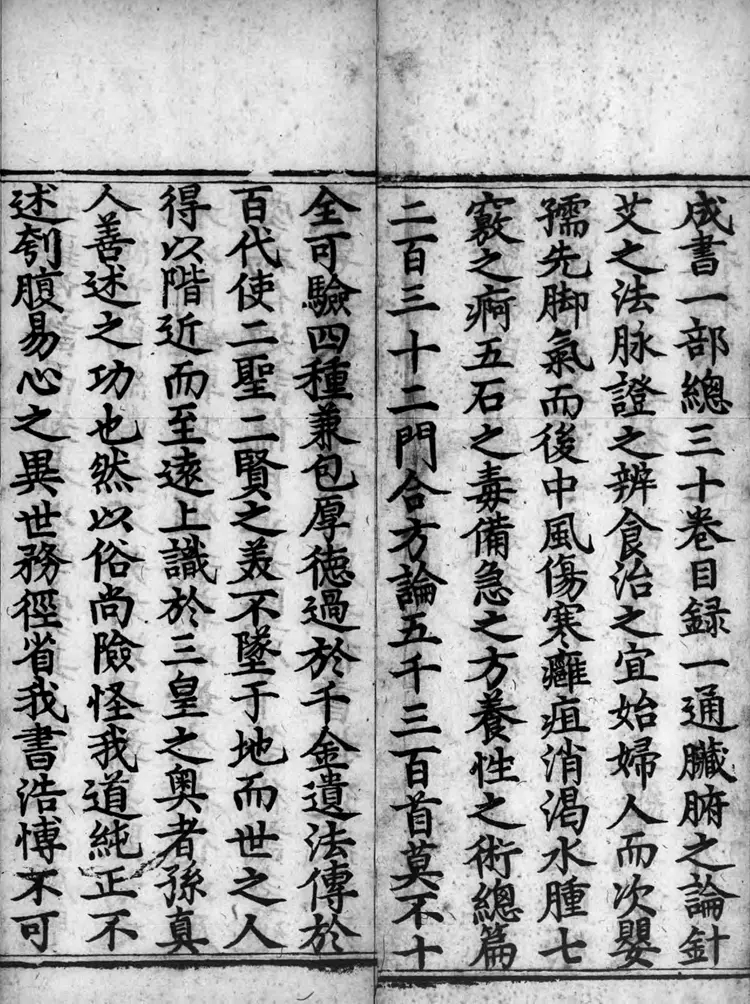 成書一部總三十卷目録一通臟腑之論針
艾之法脉證之辨食治之宜始婦人而次嬰
孺先脚氣而後中風傷寒癰疽消渴水腫七
竅之痾五石之毒備急之方養性之術總篇
二百三十二門合方論五千三百首莫不十
全可驗四種兼包厚徳過於千金遺法傳於
百代使二聖二賢之美不墜于地而世之人
得以階近而至遠上識於三皇之奥者孫真
人善述之功也然以俗尚險怪我道純正不
述刳腹易心之異世務徑省我書浩愽不可